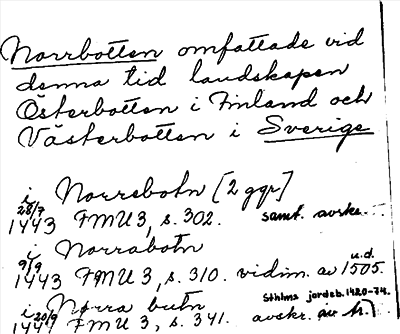 Norrbotten omfattade vid
denna tid landskapen
Österbotten i Finland och
Västerbotten i Sverige
i Norrebotn [2 ggr]
28/7 1443 FMU 3, s. 302. samt. avskr.
i Norrabotn
9/9 1443 FMU 3, s. 310. vidim. av u.d. 1505.
i Norra butn Sthlms jordeb. 1420-74.
20/9 1444 FMU 3, s. 341. avskr. av